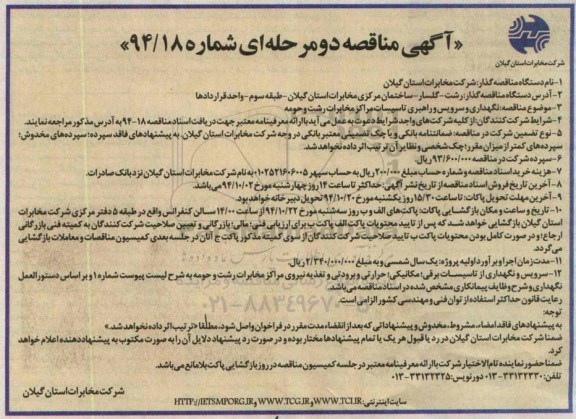 شرکت مخابرات استان گیلان
«آگهی مناقصه دو مرحله‌ای شماره ۹۴/۱۸»
۱-نام دستگاه مناقصه گذار: شرکت مخابرات استان گیلان
۲-آدرس دستگاه مناقصه گذار: رشت-گلسار-ساختمان مرکزی مخابرات استان گیلان-طبقه سوم-واحد قراردادها
۳-موضوع مناقصه: نگهداری و سرویس و راهبری تاسیسات مراکز مخابرات رشت و حومه
۴-شرایط شرکت کنندگان: از کلیه شرکت‌های واجد شرایط دعوت به عمل می‌آید با ارائه معرفینامه معتبر جهت دریافت اسناد مناقصه ۱۸-۹۴ به آدرس مذکور مراجعه نمایند.
۵-نوع تضمین شرکت در مناقصه: ضمانتنامه بانکی و یا چک تضمینی معتبر بانکی در وجه شرکت مخابرات استان گیلان. به پیشنهادهای فاقد سپرده؛ سپرده‌های مخدوش؛
سپرده‌های کمتر از میزان مقرر؛ چک شخصی و نظایر آن ترتیب اثر داده نخواهد شد.
۶-سپرده شرکت در مناقصه ۹۳/۶۰۰/۰۰۰ ریال.
۷-هزینه خرید اسناد مناقصه و شماره حساب مبلغ ۲۰۰/۰۰۰ ریال به حساب سپهر ۰۱۰۲۵۲۱۶۰۶۰۰۵ به نام شرکت مخابرات استان گیلان نزد بانک صادرات.
۸-آخرین تاریخ فروش اسناد مناقصه از تاریخ نشر آگهی: حداکثر تا ساعت ۱۴ روز چهارشنبه مورخ ۹۴/۱۰/۰۲ می‌باشد.
۹-آخرین مهلت تحویل پاکات: تا ساعت ۱۵/۳۰ روز یکشنبه مورخ ۹۴/۱۰/۲۰ تحویل دبیرخانه خواهد بود.
۱۰-تاریخ و ساعت و مکان بازگشایی پاکات: پاکت‌های الف و ب روز سه شنبه مورخ ۹۴/۱۰/۲۲ از ساعت ۱۴/۰۰ سالن کنفرانس واقع در طبقه ۵ دفتر مرکزی شرکت مخابرات
استان گیلان بازگشایی خواهد شد که پس از تایید محتویات پاکت الف پاکت ب برای ارزیابی فنی؛ مالی؛ بازرگانی و تعیین صلاحیت شرکت کنندگان به کمیته فنی بازرگانی
ارجاع؛ و در صورت کامل بودن محتویات پاکت ب تایید صلاحیت شرکت کنندگان از سوی کمیته مذکور پاکت ج آنان در جلسه بعدی کمیسیون مناقصات و معاملات بازگشایی
می‌گردد.
۱۱-مدت زمان اجرا و برآورد اولیه پروژه: یک سال شمسی و به مبلغ ۲/۳۴۰/۰۰۰/۰۰۰ ریال می‌باشد.
۱۲-سرویس و نگهداری از تاسیسات برقی؛ مکانیکی؛ حرارتی و برودتی و تغذیه نیروی مراکز مخابرات رشت و حومه به شرح لیست پیوست شماره ۱ و بر اساس دستورالعمل
نگهداری و شرح وظایف پیمانکاری مشخص شده در اسناد مناقصه می‌باشد.
رعایت قانون حداکثر استفاده از توان فنی و مهندسی کشور الزامی است.
توجه:
به پیشنهادهای فاقد امضاء، مشروط، مخدوش و پیشنهاداتی که بعد از انقضاء مدت مقرر در فراخوان واصل شود، مطلقا «ترتیب اثر داده نخواهد شد.»
ضمنا شرکت مخابرات استان گیلان در رد یا قبول هر یک یا تمام پیشنهادها مختار بوده و در صورت رد پیشنهاد دلایل آن را به صورت مکتوب به پیشنهاد دهنده اعلام خواهد کرد
ضمنا حضور نماینده تام الاختیار شرکت با ارائه معرفینامه معتبر در جلسه کمیسیون مناقصه در روز بازگشایی پاکت بلامانع می‌باشد.
تلفن: ۳۳۱۳۲۳۳۰-۰۱۳ دورنویس: ۳۳۱۳۲۳۲۵-۰۱۳
شرکت مخابرات استان گیلان
سایت اینترنتی: WWW.TCI.IR و WWW.TCG.IR و HTTP://IETS.MPORG.IR
۰۲۱-۸۸۳۴۹۶۷۰